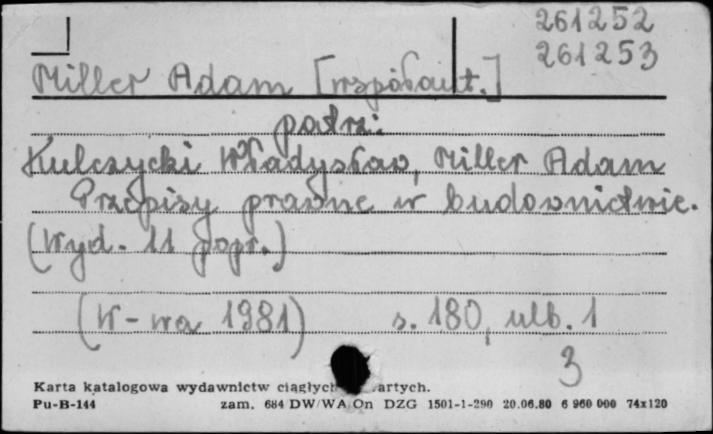 261252
261253
Miller Adam [współaut.]
patrz:
Kulczycki Władysław, Miller Adam
Przepisy prawne w budownictwie.
(Wyd. 11 popr.)
(W-wa 1981) s. 180, ulb. 1
3
Karta katalogowa wydawnictw ciągłych artych.
Pu-B-144 zam. 684 DW/WA/On DZG 1501-1-290 20.06.80 6 960 000 74x120